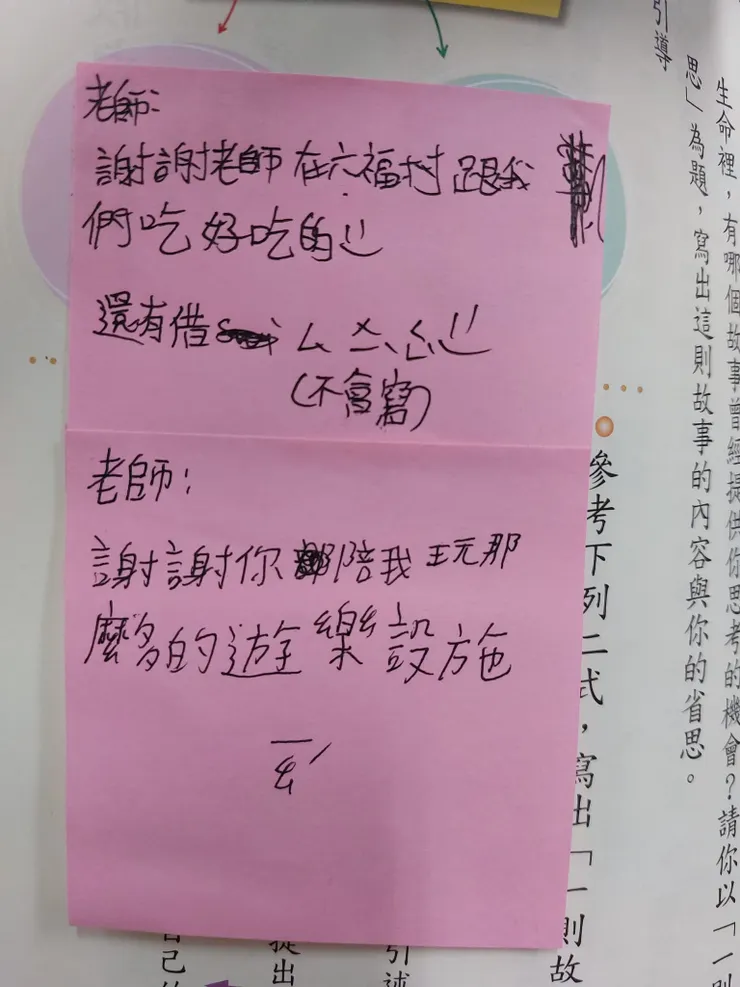 老師:
謝謝老師在六福村跟我
們吃好吃的
還有借
(不會寫)
老師:
謝謝你陪我玩那
麼多的遊樂設施
引導
思」為題，寫出這則故事的內容與你的省思。
生命裡，有哪個故事曾經提供你思考的機會？請你以「一則
參考下列二式，寫出「一則故
引述
提出
自己的